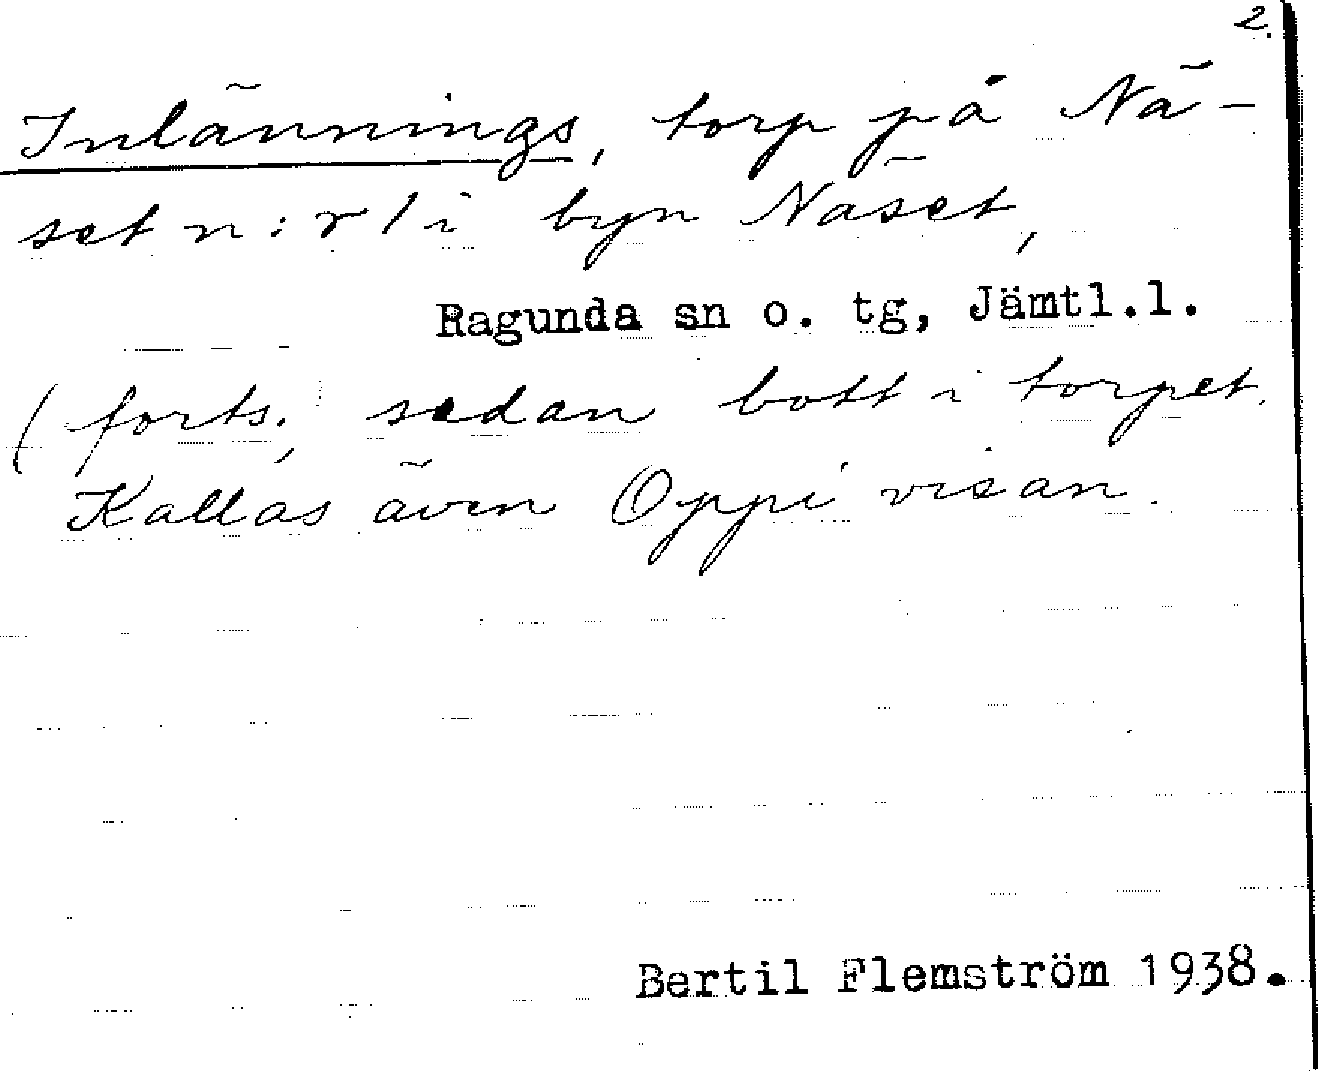 2.
Inlännings, torp på Nä-
set n:r 1 i byn Näset,
Ragunda sn o. tg, Jämtl.l.
(forts., sedan bott i torpet.
Kallas även Oppi visan.
Bertil Flemström 1938.